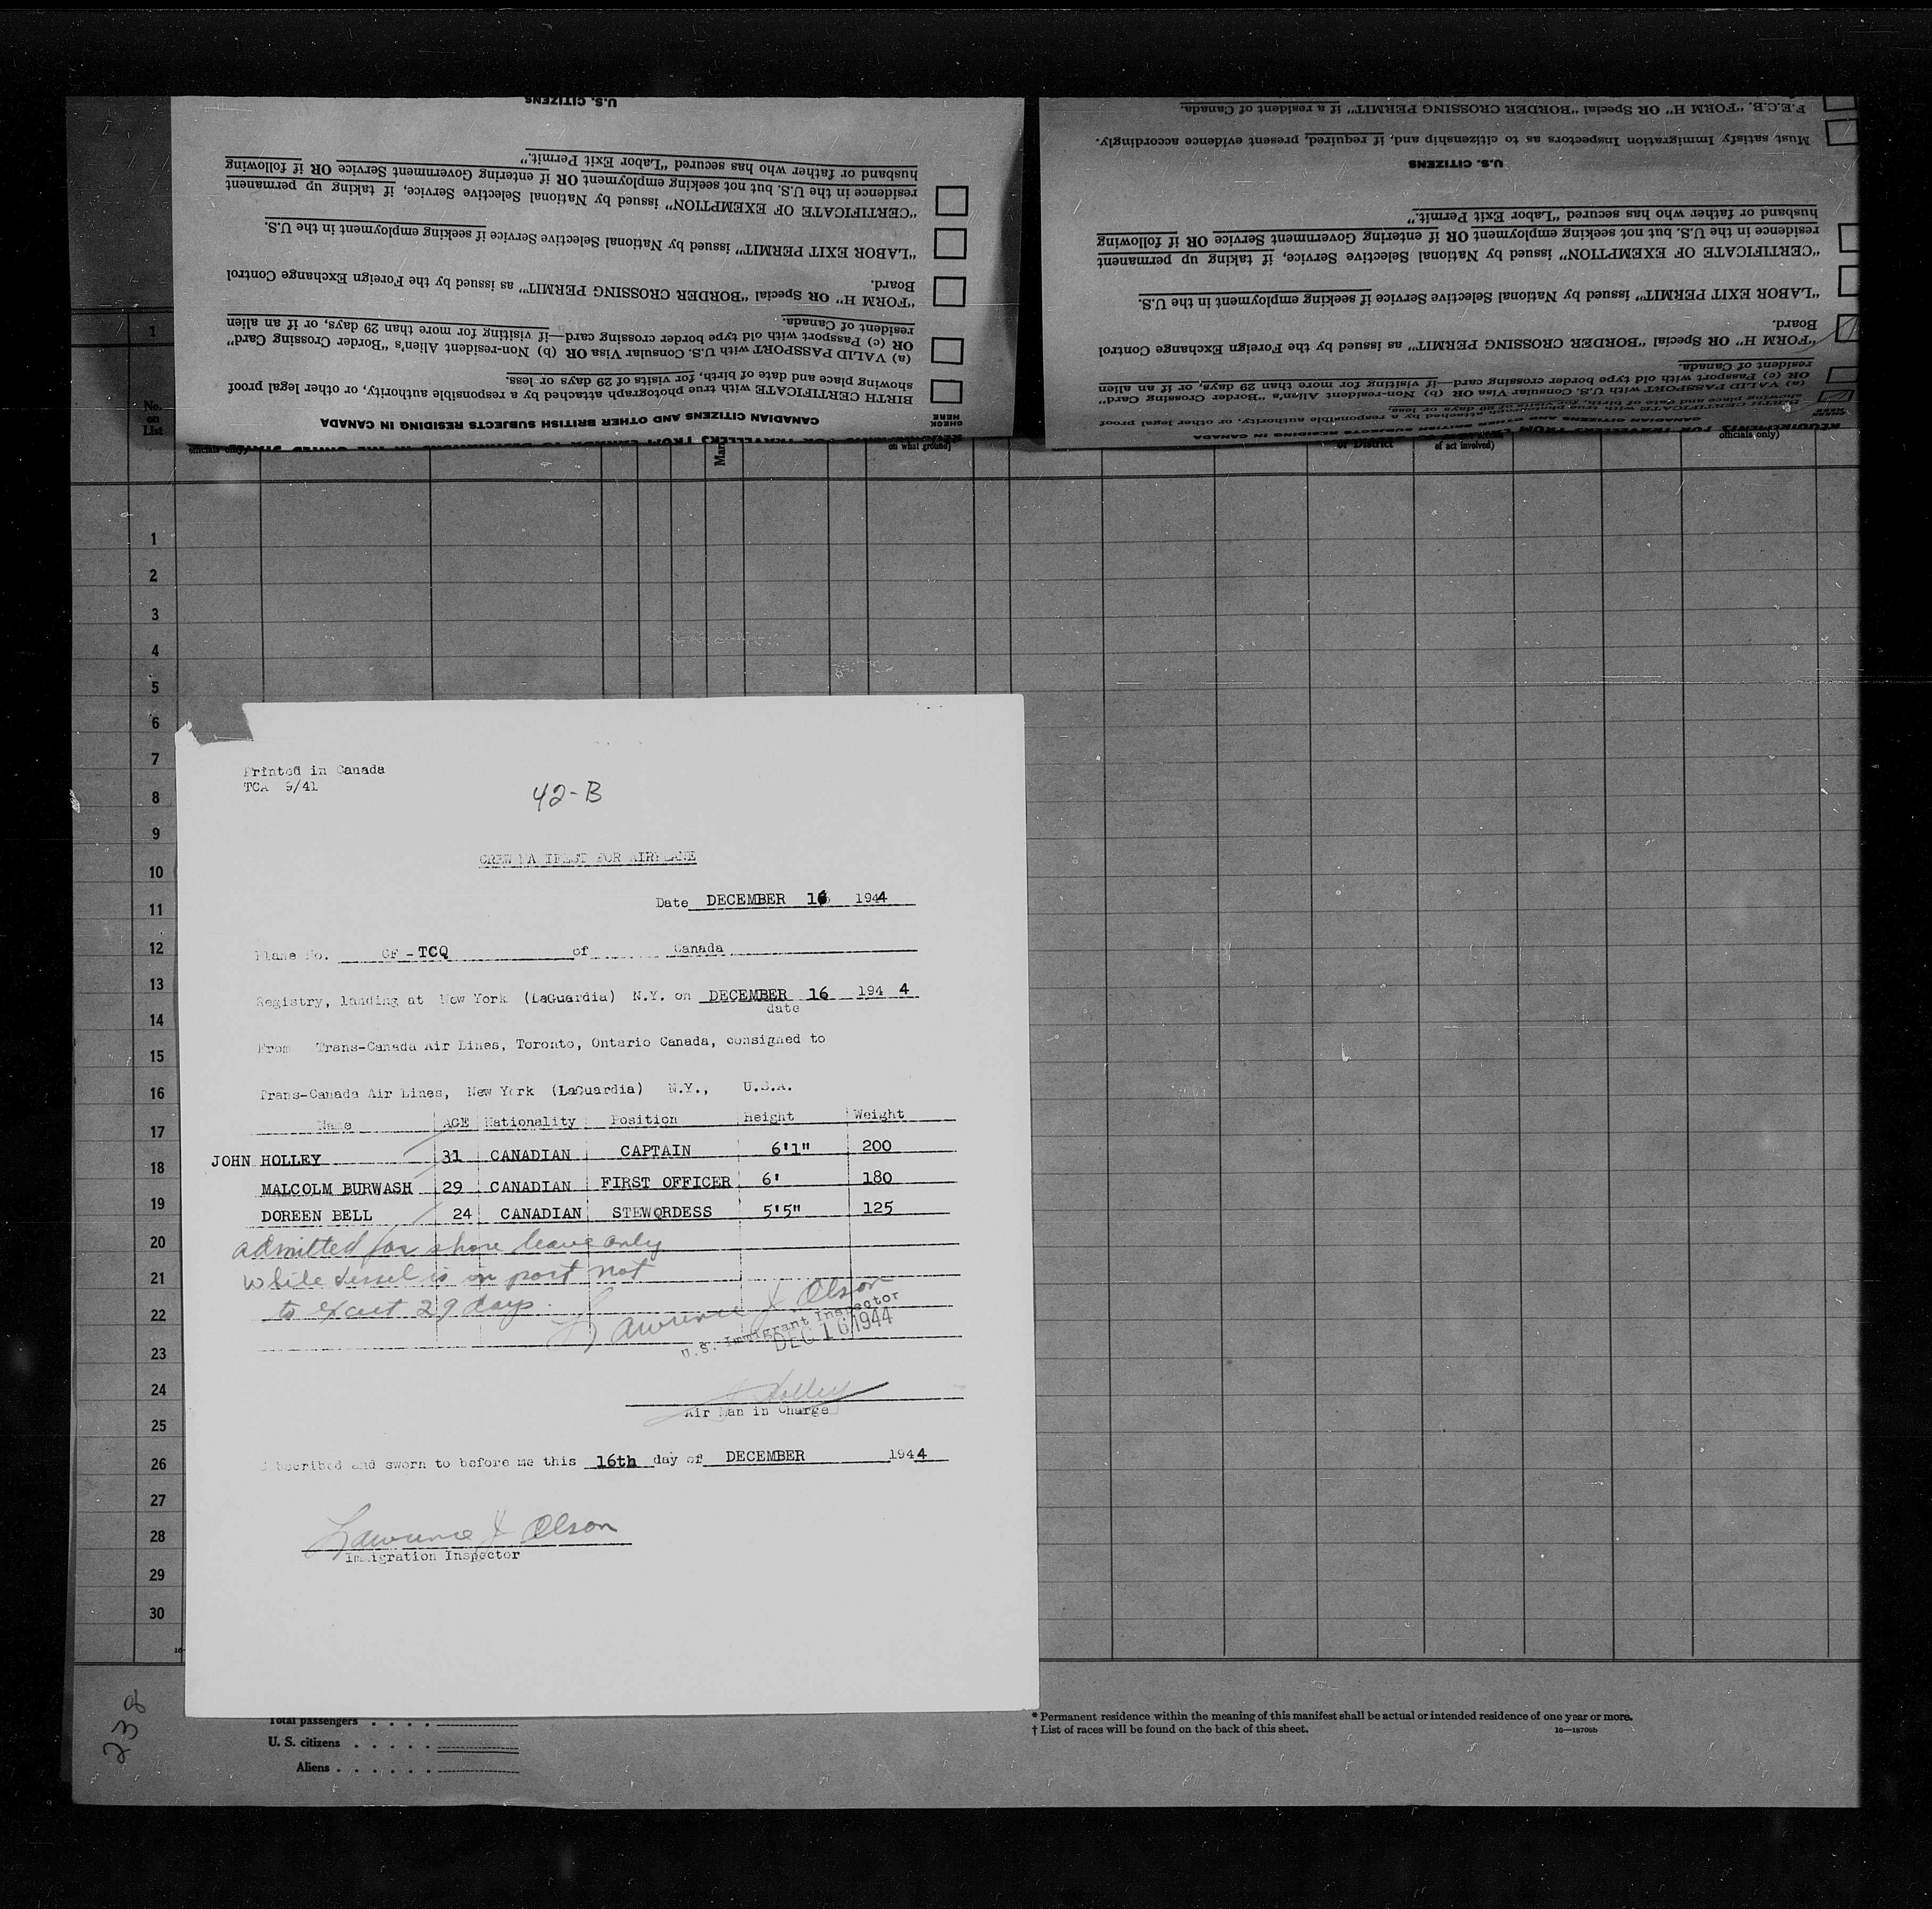 U.S. CITIZENS
husband or father who has secured "Labor Exit Permit."
residence in the U.S. but not seeking employment OR if entering Government Service OR if following
"CERTIFICATE OF EXEMPTION" issued by National Selective Service, if taking up permanent
"LABOR EXIT PERMIT" issued by National Selective Service if seeking employment in the U.S.
Board.
"FORM H" OR Special "BORDER CROSSING PERMIT" as issued by the Foreign Exchange Control
resident of Canada.
OR (c) Passport with old type border crossing card—if visiting for more than 29 days, or if an alien
(a) VALID PASSPORT with U.S. Consular Visa OR (b) Non-resident Alien's "Border Crossing Card"
showing place and date of birth, for visits of 29 days or less.
BIRTH CERTIFICATE with true photograph attached by a responsible authority, or other legal proof
CHECK HERE
CANADIAN CITIZENS AND OTHER BRITISH SUBJECTS RESIDING IN CANADA
F.E.C.B. "FORM H" OR Special "BORDER CROSSING PERMIT" if a resident of Canada.
Must satisfy Immigration Inspectors as to citizenship and, if required, present evidence accordingly.
U.S. CITIZENS
husband or father who has secured "Labor Exit Permit."
residence in the U.S. but not seeking employment OR if entering Government Service OR if following
"CERTIFICATE OF EXEMPTION" issued by National Selective Service, if taking up permanent
"LABOR EXIT PERMIT" issued by National Selective Service if seeking employment in the U.S.
Board.
"FORM H" OR Special "BORDER CROSSING PERMIT" as issued by the Foreign Exchange Control
resident of Canada.
OR (c) Passport with old type border crossing card—if visiting for more than 29 days, or if an alien
(a) VALID PASSPORT with U.S. Consular Visa OR (b) Non-resident Alien's "Border Crossing Card"
showing place and date of birth, for visits of 29 days or less.
BIRTH CERTIFICATE with true photograph attached by a responsible authority, or other legal proof
CANADIAN CITIZENS AND OTHER BRITISH SUBJECTS RESIDING IN CANADA
REQUIREMENTS FOR TRAVELLERS FROM
1
No. on List
officials only)
on what ground]
or District
of act involved)
officials only)
1
2
3
4
5
6
7
8
9
10
11
12
13
14
15
16
17
18
19
20
21
22
23
24
25
26
27
28
29
30
Printed in Canada
TCA 9/41
42-B
CREW MANIFEST FOR AIRPLANE
Date DECEMBER 16 1944
Plane No. CF-TCQ of Canada
Registry, landing at New York (LaGuardia) N.Y. on DECEMBER 16 194 4
date
From Trans-Canada Air Lines, Toronto, Ontario Canada, consigned to
Trans-Canada Air Lines, New York (LaGuardia) N.Y., U.S.A.
Name AGE Nationality Position Height Weight
JOHN HOLLEY 31 CANADIAN CAPTAIN 6'1" 200
MALCOLM BURWASH 29 CANADIAN FIRST OFFICER 6' 180
DOREEN BELL 24 CANADIAN STEWQRDESS 5'5" 125
admitted for shore leave only
while vessel is in port not
to exceet 29 days.
Lawrence J Olson
U.S. Immigrant Inspector
DEC 16 1944
J Holley
Air Man in Charge
Subscribed and sworn to before me this 16th day of DECEMBER 1944
Lawrence J Olson
Immigration Inspector
238
Total passengers
U. S. citizens
Aliens
* Permanent residence within the meaning of this manifest shall be actual or intended residence of one year or more.
† List of races will be found on the back of this sheet.
16—18706b